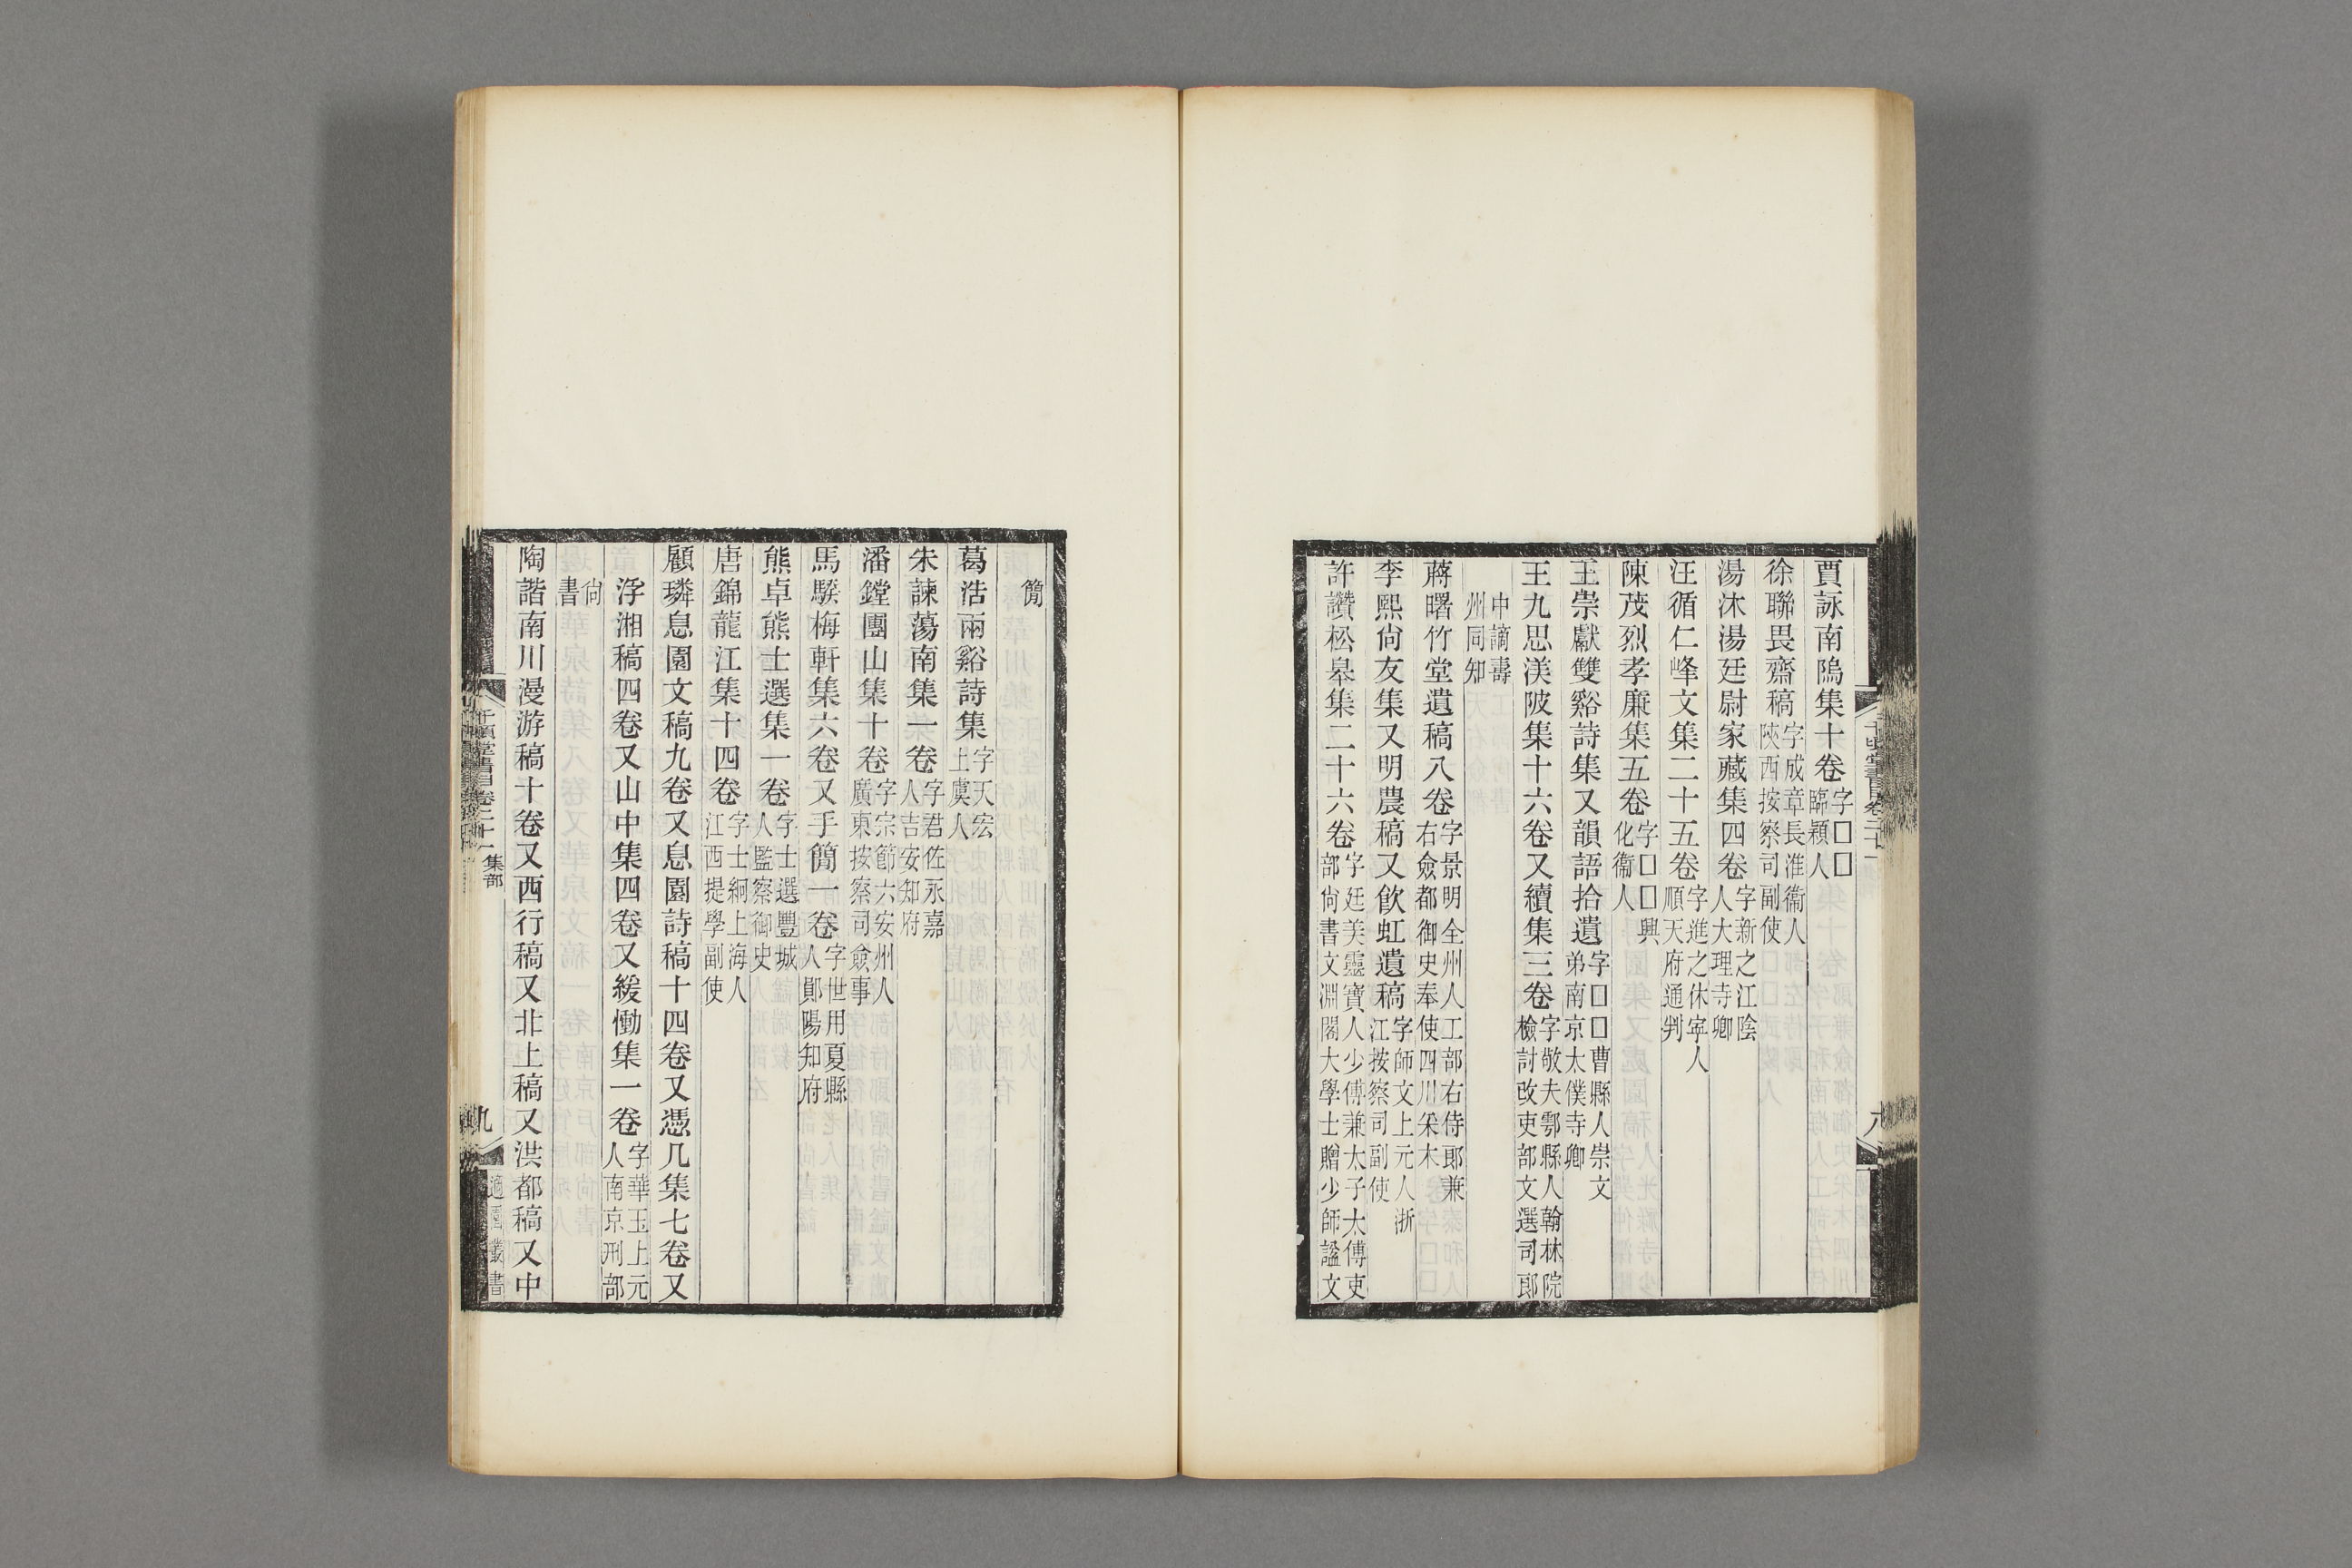 賈詠南隖集十卷字□□臨潁人
徐聯畏齋稿字成章長淮衞人陝西按察司副使
湯沐湯廷尉家藏集四卷字新之江陰人大理寺卿
汪循仁峰文集二十五卷字進之休寧人順天府通判
陳茂烈孝廉集五卷字□□興化衞人
王崇獻雙谿詩集又韻語拾遺字□□曹縣人崇文弟南京太僕寺卿
王九思渼陂集十六卷又續集三卷字敬夫鄠縣人翰林院檢討改吏部文選司郎
中謫壽州同知
蔣曙竹堂遺稿八卷字景明全州人工部右侍郎兼右僉都御史奉使四川采木
李熙尙友集又明農稿又飮虹遺稿字師文上元人浙江按察司副使
許讚松皋集二十六卷字廷美靈寶人少傅兼太子太傅吏部尙書文淵閣大學士贈少師謚文
簡
葛浩兩谿詩集字天宏上虞人
朱諫蕩南集一卷字君佐永嘉人吉安知府
潘鏜團山集十卷字宗節六安州人廣東按察司僉事
馬騤梅軒集六卷又手簡一卷字世用夏縣人鄖陽知府
熊卓熊士選集一卷字士選豐城人監察御史
唐錦龍江集十四卷字士絅上海人江西提學副使
顧璘息園文稿九卷又息園詩稿十四卷又憑几集七卷又
浮湘稿四卷又山中集四卷又緩慟集一卷字華玉上元人南京刑部
尙書
陶諧南川漫游稿十卷又西行稿又北上稿又洪都稿又中
千頃堂書目卷二十一
集部
九
適園叢書